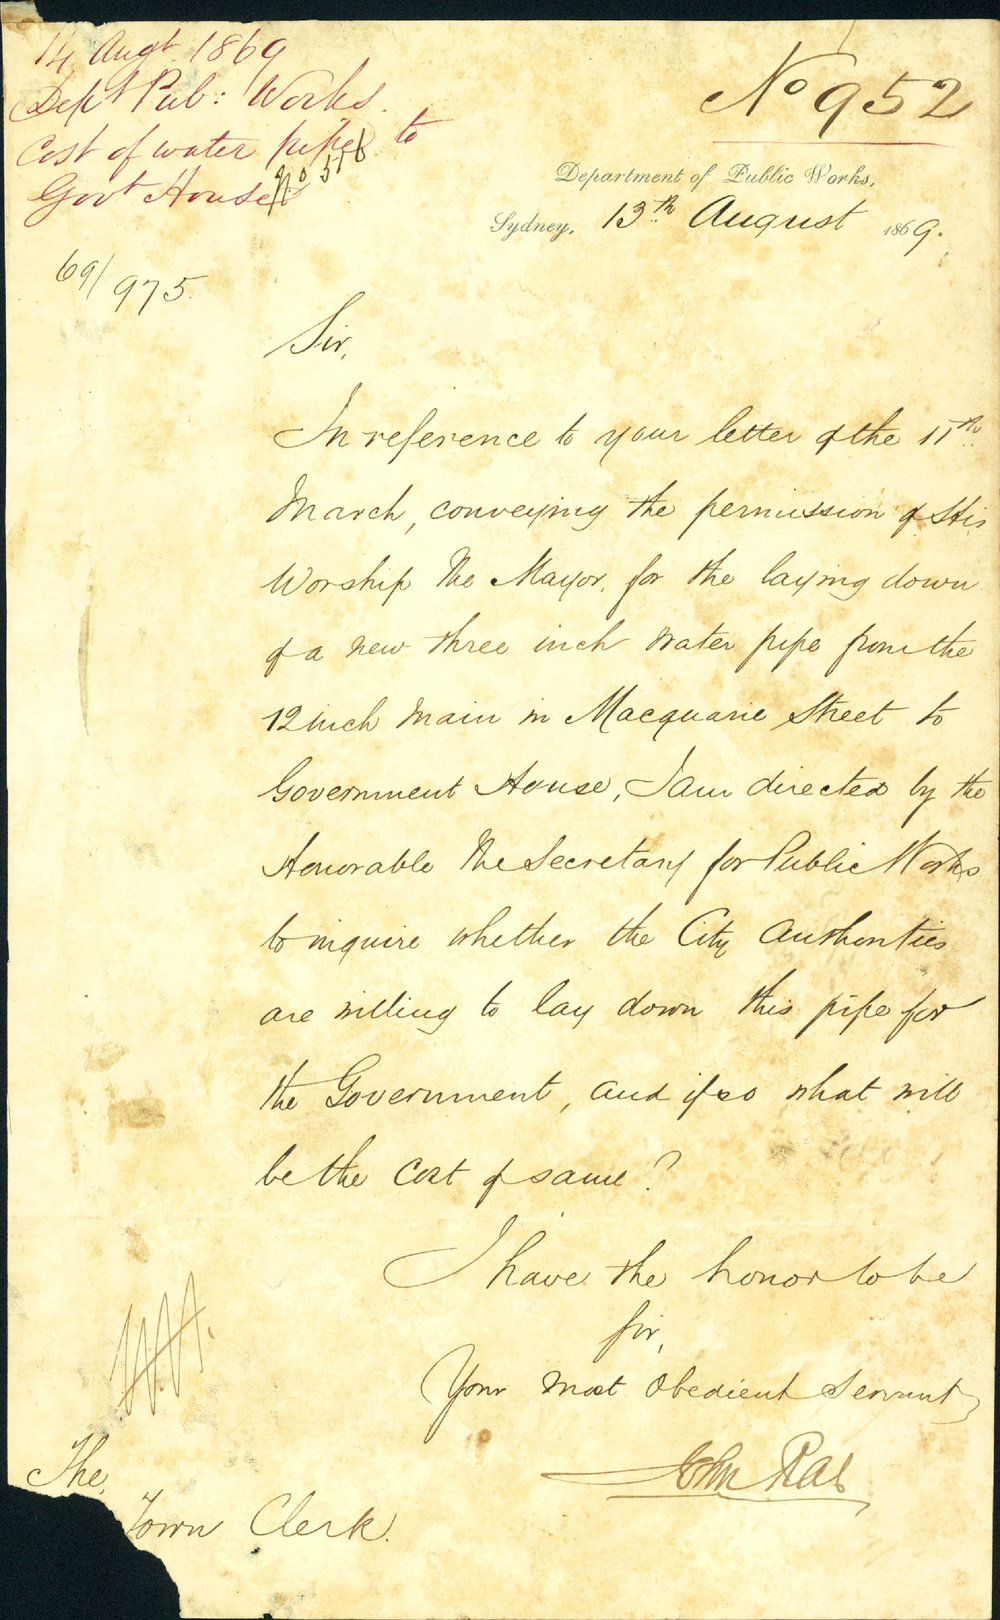 14 Augt. 1869
Dept Pub: Works.
Cost of water pipe to
Govt House
No 952
Department of Public Works,
Sydney, 13th August 1869.
69/975.
Sir,
In reference to your letter of the 11th
March, conveying the permission of His
Worship the Mayor, for the laying down
of a new three inch water pipe from the
12 inch main in Macquarie Street to
Government House, I am directed by the
Honorable the Secretary for Public Works
to inquire whether the City Authorities
are willing to lay down this pipe for
the Government, and if so what will
be the cost of same?
I have the honor to be
Sir,
Your most Obedient Servant
John Rae
The
Town Clerk.